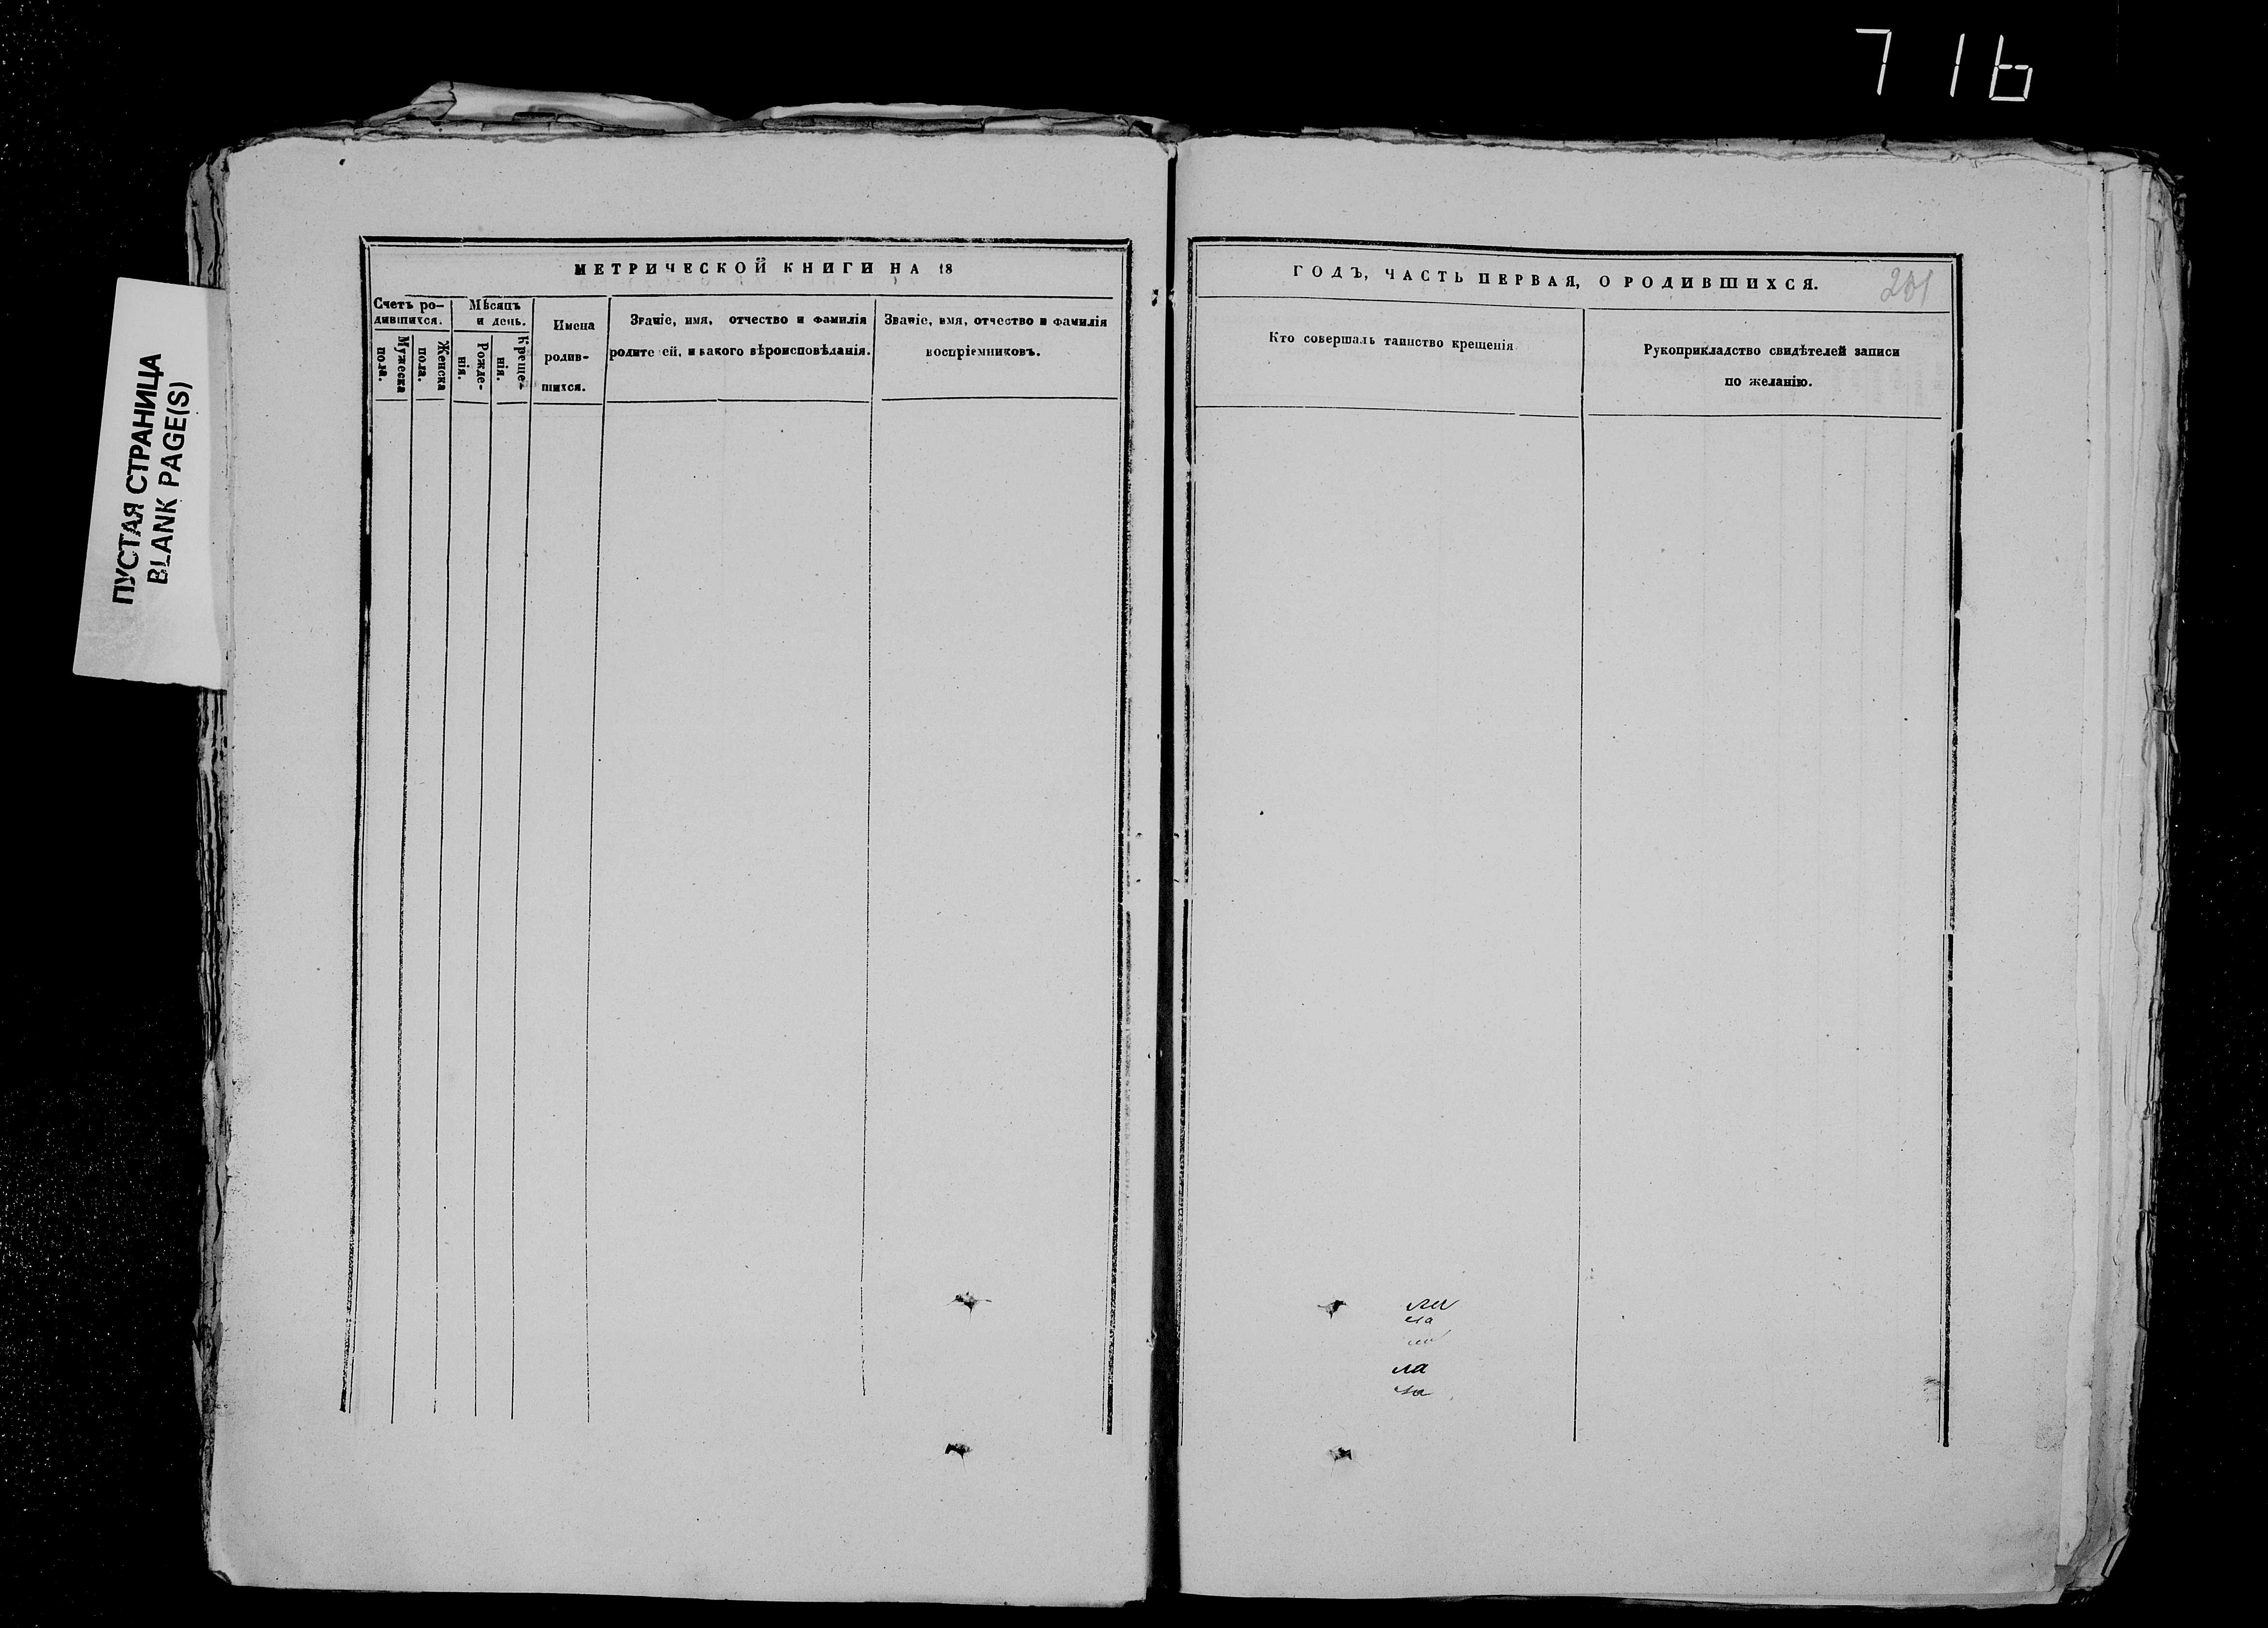 716
ПУСТАЯ СТРАНИЦА
BLANK PAGE(S)
МЕТРИЧЕСКОЙ КНИГИ НА 18
Счетъ ро-
дившихся.
Мужеска
пола.
Женска
пола.
Мѣсяцъ
и день.
Рожде-
нія.
Креще-
нія.
Имена
родив-
шихся.
Званіе, имя, отчество и фамилія
родителей, и какого вѣроисповѣданія.
Званіе, имя, отчество и фамилія
воспріемниковъ.
ГОДЪ, ЧАСТЬ ПЕРВАЯ, О РОДИВШИХСЯ.
201
Кто совершалъ таинство крещенія
Рукоприкладство свидѣтелей записи
по желанію.
ла